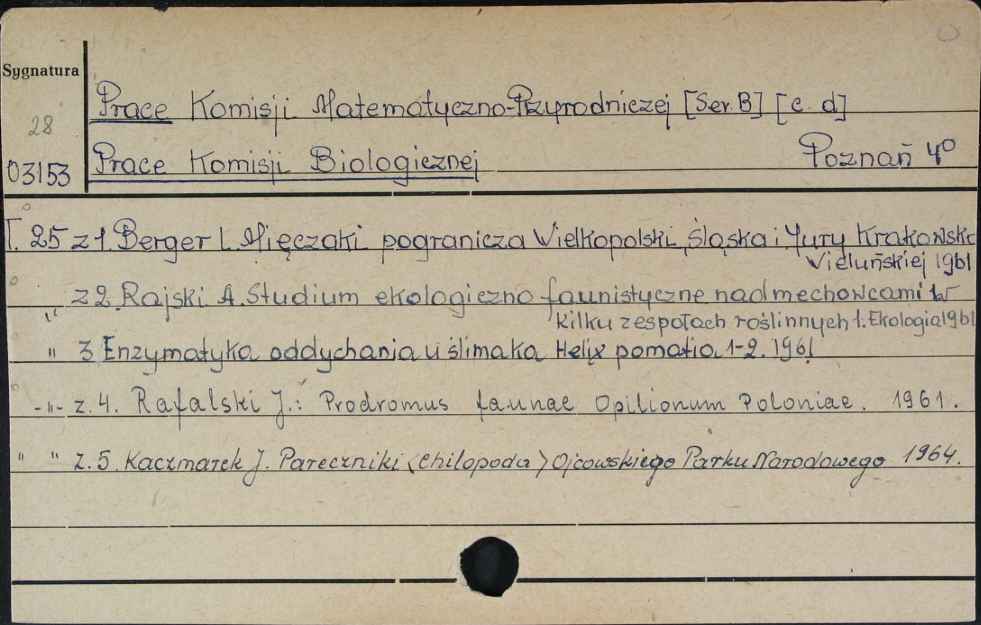 Sygnatura
Prace Komisji Matematyczno-Przyrodniczej [Ser. B] [c. d]
28
03153
Prace Komisji Biologicznej Poznań 4°
T. 25 z 1. Berger L. Mięczaki pogranicza Wielkopolski, Śląska i Jury Krakowsko
Wieluńskiej 1961
" z 2. Rajski A. Studium ekologiczno faunistyczne nad mechowcami w
kilku zespołach roślinnych 1. Ekologia 1961
" 3 Enzymatyka oddychania u ślimaka Helix pomatia 1-2. 1961
-"- z. 4. Rafalski J.: Prodromus faunae Opilionum Poloniae. 1961.
" " z. 5. Kaczmarek J. Pareczniki (Chilopoda) Ojcowskiego Parku Narodowego 1964.